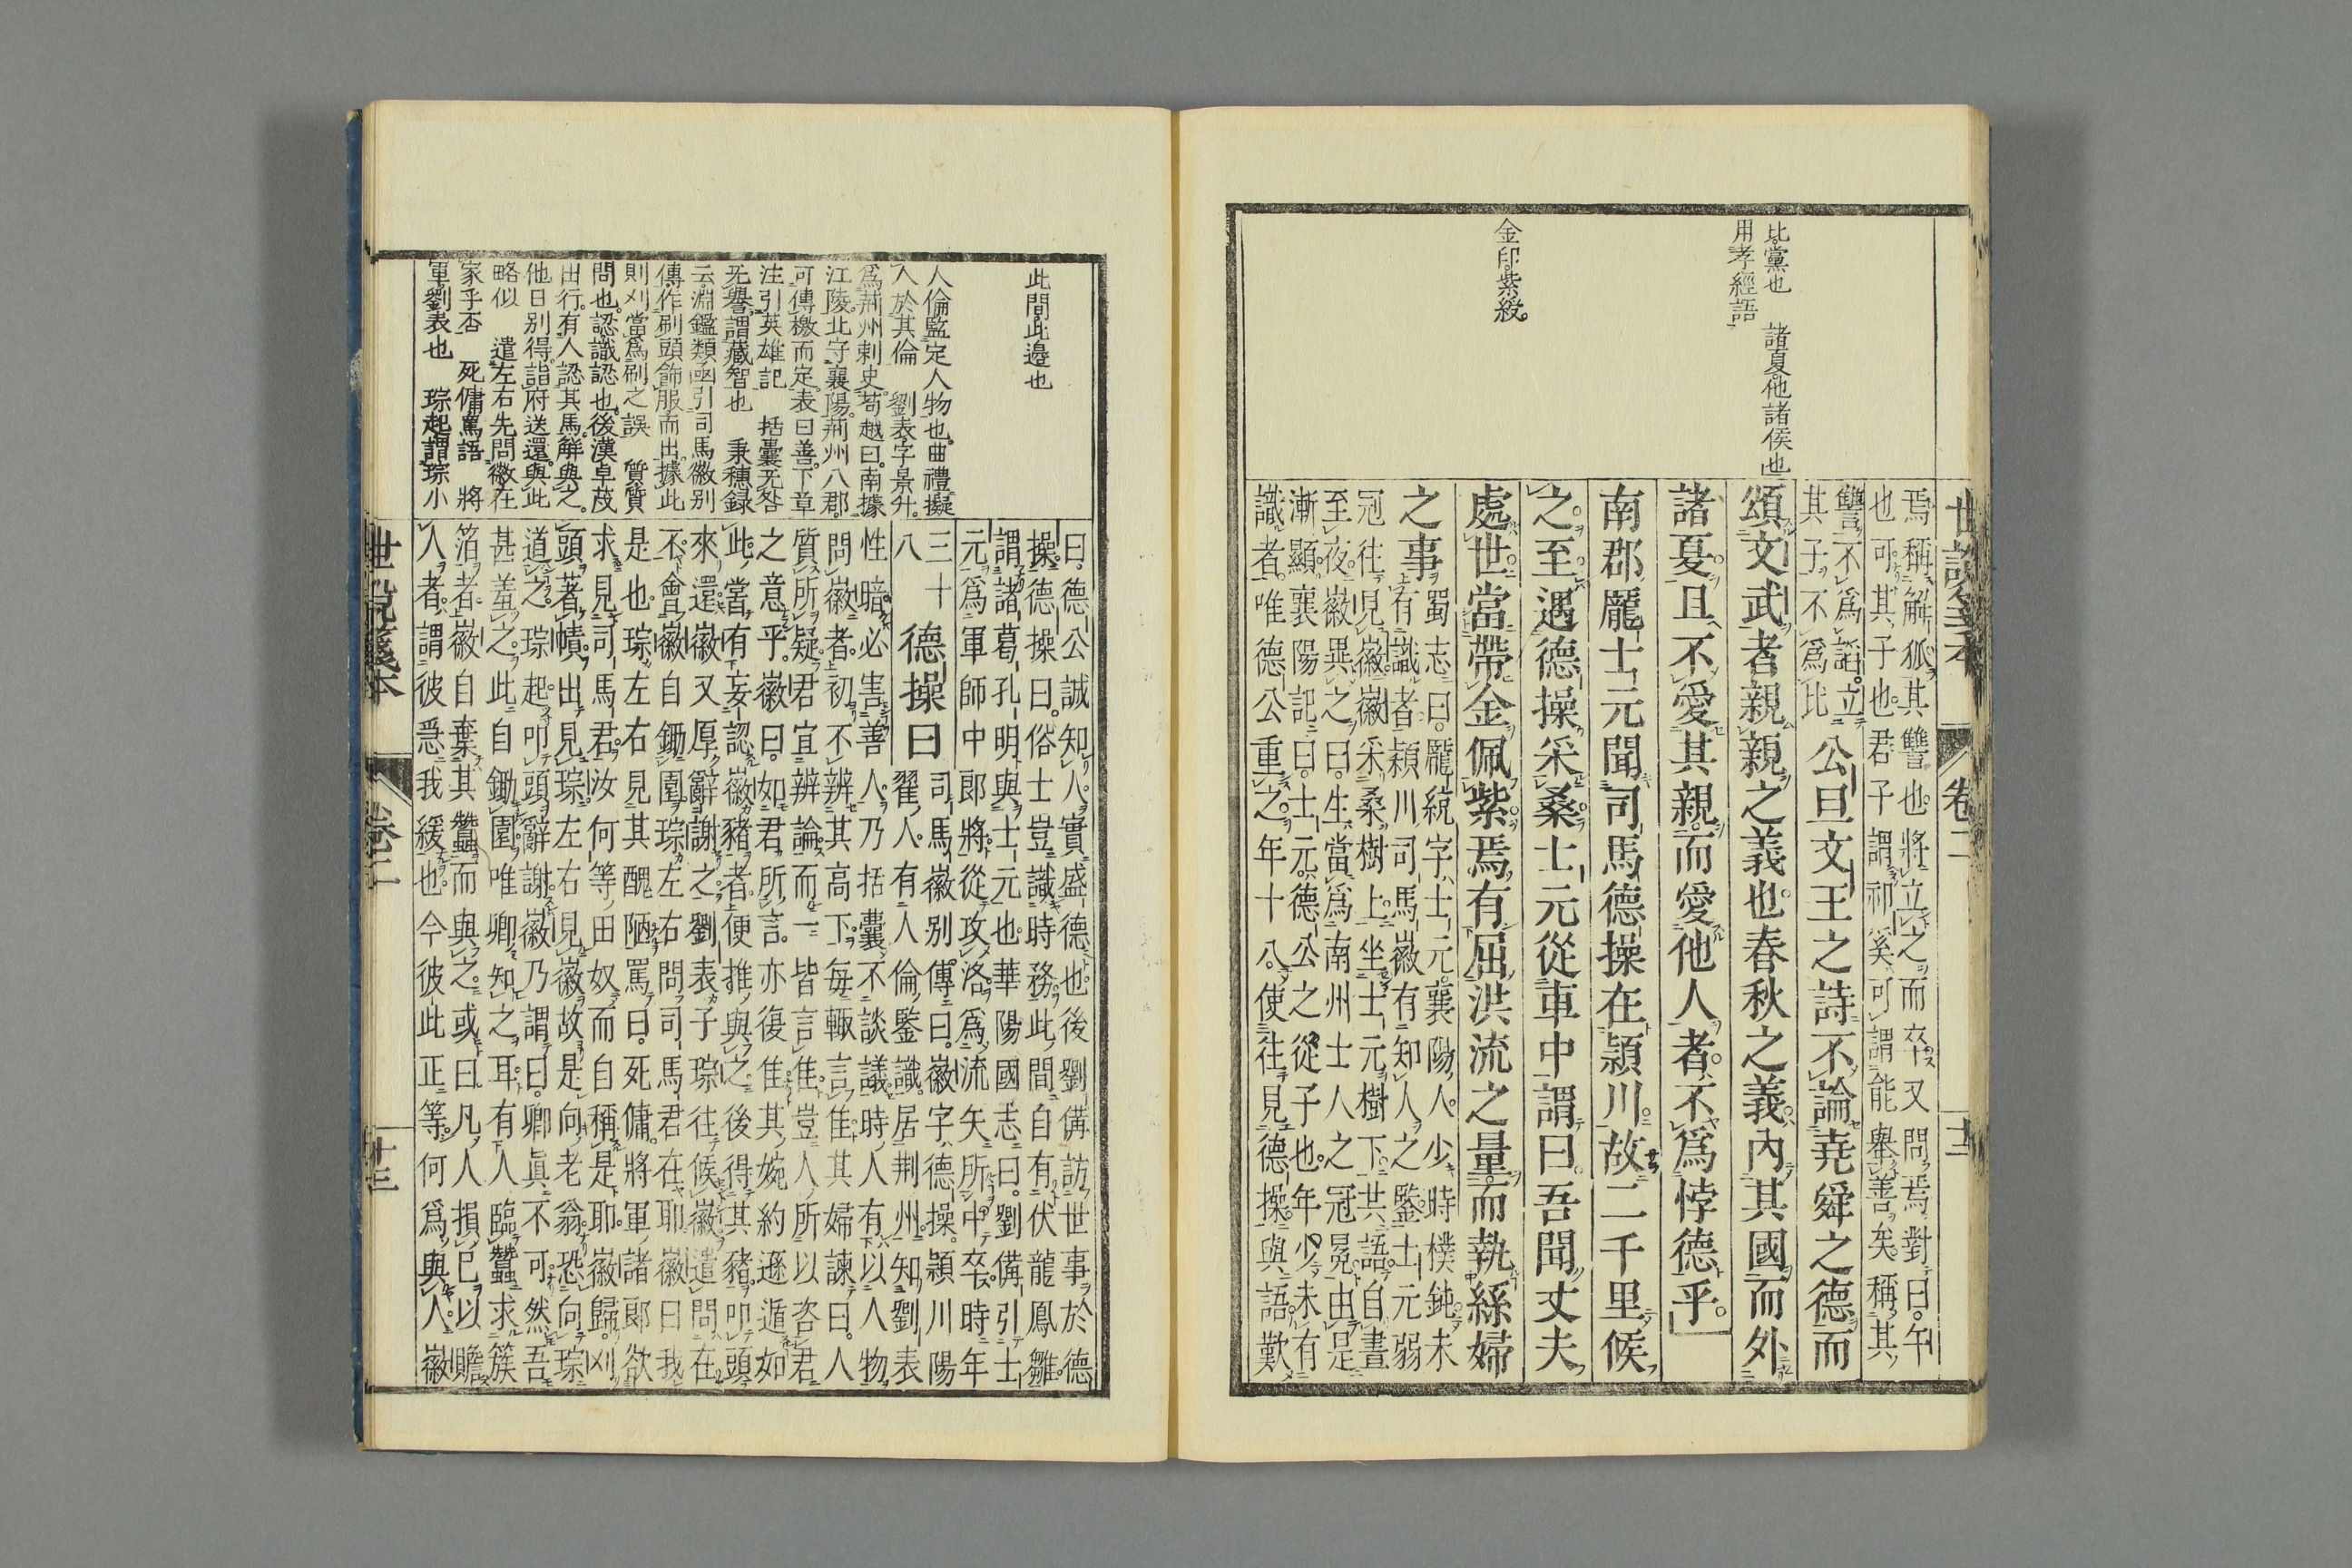 世說箋本
卷二
十二
比黨也　諸夏他諸侯也
用孝經語
金印紫綬
焉稱解狐其讐也將立之而卒又問焉對曰午
也可其子也君子謂祁奚可謂能擧善矣稱其
讐不爲諂立
其子不爲比
公旦文王之詩不論堯舜之德而
頌文武者親親之義也春秋之義內其國而外
諸夏且不愛其親而愛他人者不爲悖德乎
南郡龐士元聞司馬德操在潁川故二千里候
之至遇德操采桑士元從車中謂曰吾聞丈夫
處世當帶金佩紫焉有屈洪流之量而執絲婦
之事
蜀志曰龐統字士元襄陽人少時樸鈍未
有識者潁川司馬徽有知人之鑒士元弱
冠往見徽徽采桑樹上坐士元樹下共語自晝
至夜徽異之曰生當爲南州士人之冠冕由是
漸顯襄陽記曰士元德公之從子也年少未有
識者唯德公重之年十八使往見德操與語歎
此間此邊也
人倫監定人物也曲禮擬
人於其倫　劉表字景升
爲荊州刺史苟越曰南據
江陵北守襄陽荊州八郡
可傳檄而定表曰善下章
注引英雄記　括囊无咎
无譽謂藏智也　秉穗録
云淵鑑類函引司馬徽別
傳作刷頭飾服而出據此
則刈當爲刷之誤　質質
問也認識認也後漢卓茂
出行有人認其馬解與之
他日別得詣府送還與此
略似　遣左右先問徽在
家乎否　死傭罵語　將
軍劉表也　琮起謂琮小
曰德公誠知人實盛德也後劉備訪世事於德
操德操曰俗士豈識時務此間自有伏龍鳳雛
謂諸葛孔明與士元也華陽國志曰劉備引士
元爲軍師中郎將從攻洛爲流矢所中卒時年
三十
八
德操曰
司馬徽別傳曰徽字德操潁川陽
翟人有人倫鑒識居荊州知劉表
性暗必害善人乃括囊不談議時人有以人物
問徽者初不辨其高下每輒言佳其婦諫曰人
質所疑君宜辨論而一皆言佳豈人所以咨君
之意乎徽曰如君所言亦復佳其婉約遜遁如
此嘗有妄認徽豬者便推與之後得其豬叩頭
來還徽又厚辭謝之劉表子琮往候徽遣問在
不會徽自鋤園琮左右問司馬君在耶徽曰我
是也琮左右見其醜陋罵曰死傭將軍諸郎欲
求見司馬君汝何等田奴而自稱是耶徽歸刈
頭著幘出見琮左右見徽故是向老翁恐向琮
道之琮起叩頭辭謝徽乃謂曰卿真不可然吾
甚羞之此自鋤園唯卿知之耳有人臨蠶求簇
箔者徽自棄其蠶而與之或曰凡人損己以贍
人者謂彼急我緩也今彼此正等何爲與人徽
世說箋本
卷二
十三